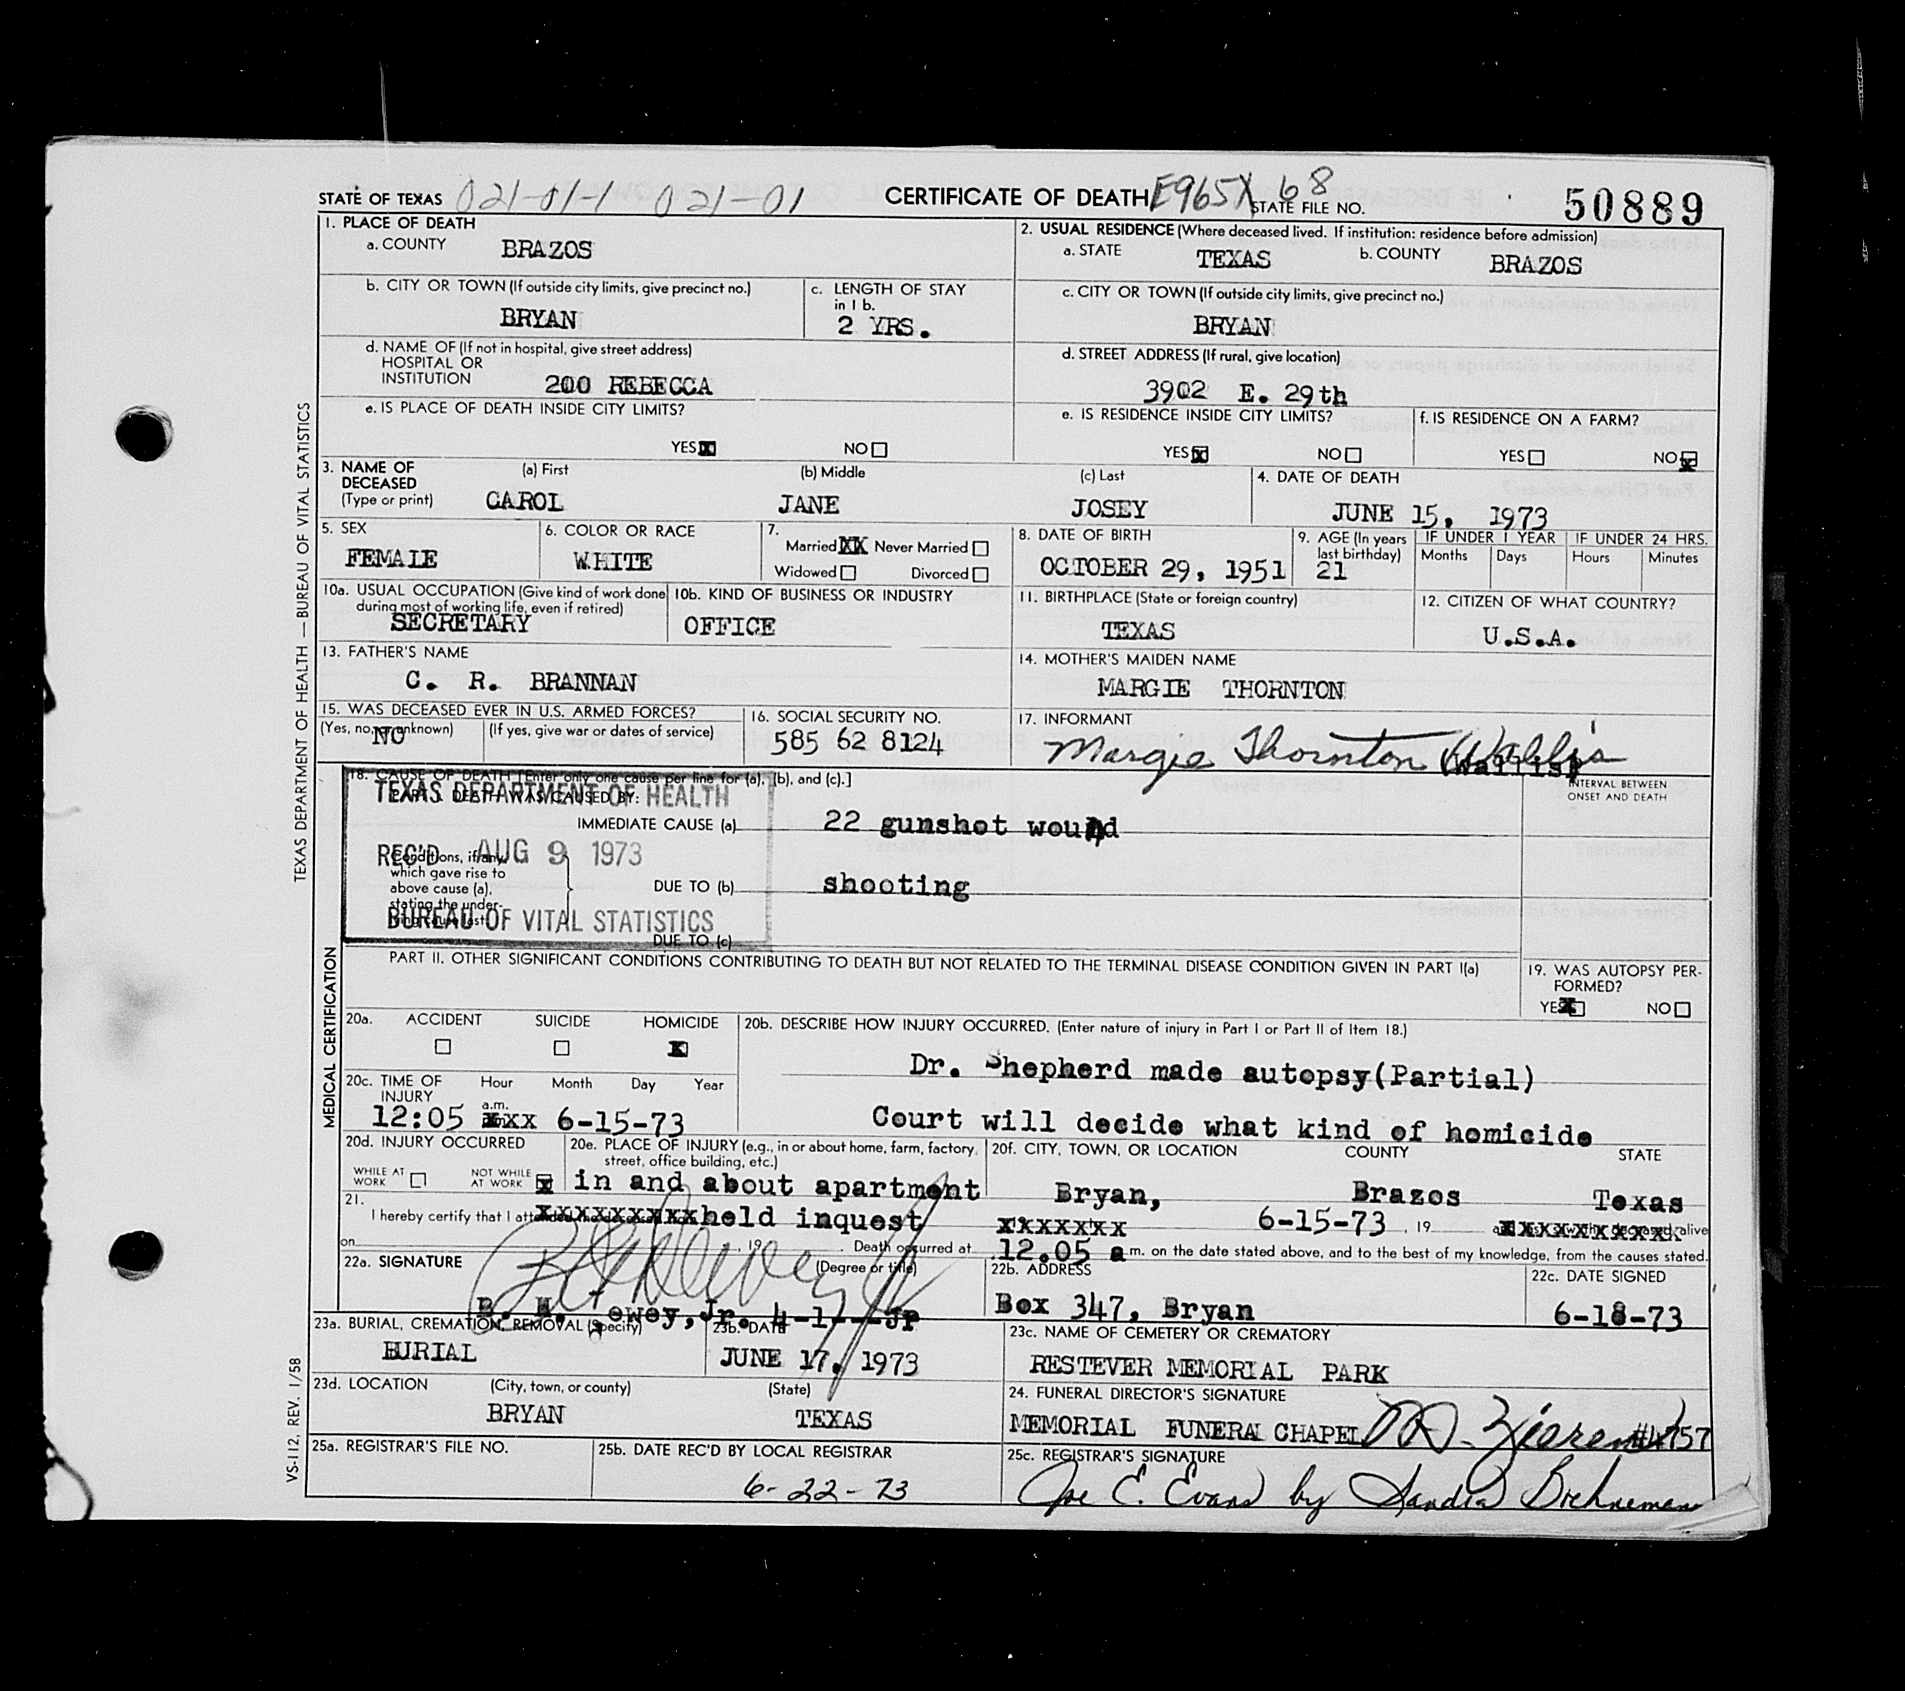 STATE OF TEXAS 021-01-1 021-01 CERTIFICATE OF DEATH E965X 68 STATE FILE NO. 50889
1. PLACE OF DEATH
a. COUNTY BRAZOS
2. USUAL RESIDENCE (Where deceased lived. If institution: residence before admission)
a. STATE TEXAS b. COUNTY BRAZOS
b. CITY OR TOWN (If outside city limits, give precinct no.) BRYAN
c. LENGTH OF STAY in 1 b. 2 YRS.
c. CITY OR TOWN (If outside city limits, give precinct no.) BRYAN
d. NAME OF (If not in hospital, give street address)
HOSPITAL OR
INSTITUTION 200 REBECCA
d. STREET ADDRESS (If rural, give location)
3902 E. 29th
e. IS PLACE OF DEATH INSIDE CITY LIMITS?
YES X NO
e. IS RESIDENCE INSIDE CITY LIMITS?
YES X NO
f. IS RESIDENCE ON A FARM?
YES NO X
3. NAME OF DECEASED (Type or print)
(a) First CAROL
(b) Middle JANE
(c) Last JOSEY
4. DATE OF DEATH
JUNE 15, 1973
5. SEX FEMALE
6. COLOR OR RACE WHITE
7. Married XX Never Married
Widowed Divorced
8. DATE OF BIRTH OCTOBER 29, 1951
9. AGE (In years last birthday) 21
IF UNDER 1 YEAR Months Days
IF UNDER 24 HRS. Hours Minutes
10a. USUAL OCCUPATION (Give kind of work done during most of working life, even if retired)
SECRETARY
10b. KIND OF BUSINESS OR INDUSTRY
OFFICE
11. BIRTHPLACE (State or foreign country)
TEXAS
12. CITIZEN OF WHAT COUNTRY?
U.S.A.
13. FATHER'S NAME
C. R. BRANNAN
14. MOTHER'S MAIDEN NAME
MARGIE THORNTON
15. WAS DECEASED EVER IN U.S. ARMED FORCES?
(Yes, no, or unknown) NO (If yes, give war or dates of service)
16. SOCIAL SECURITY NO.
585 62 8124
17. INFORMANT
Margie Thornton Wallis
(Wallis)
18. CAUSE OF DEATH [Enter only one cause per line for (a), [b), and (c).]
PART I. DEATH WAS CAUSED BY:
TEXAS DEPARTMENT OF HEALTH
REC'D AUG 9 1973
BUREAU OF VITAL STATISTICS
INTERVAL BETWEEN ONSET AND DEATH
IMMEDIATE CAUSE (a) 22 gunshot wound
Conditions, if any, which gave rise to above cause (a), stating the underlying cause last.
DUE TO (b) shooting
DUE TO (c)
PART II. OTHER SIGNIFICANT CONDITIONS CONTRIBUTING TO DEATH BUT NOT RELATED TO THE TERMINAL DISEASE CONDITION GIVEN IN PART I(a)
19. WAS AUTOPSY PERFORMED?
YES X NO
20a. ACCIDENT SUICIDE HOMICIDE X
20b. DESCRIBE HOW INJURY OCCURRED. (Enter nature of injury in Part I or Part II of Item 18.)
Dr. Shepherd made autopsy(Partial)
Court will decide what kind of homicide
20c. TIME OF INJURY Hour Month Day Year
12:05 a.m. xxx 6-15-73
20d. INJURY OCCURRED
WHILE AT WORK NOT WHILE AT WORK X
20e. PLACE OF INJURY (e.g., in or about home, farm, factory, street, office building, etc.)
in and about apartment
20f. CITY, TOWN, OR LOCATION COUNTY STATE
Bryan, Brazos Texas
21. I hereby certify that I attended xxxxxxxxx held inquest xxxxxxx 6-15-73, 19 xxxxxxxxxx alive
on , 19 . Death occurred at 12.05 a m. on the date stated above, and to the best of my knowledge, from the causes stated.
22a. SIGNATURE (Degree or title)
22b. ADDRESS
Box 347, Bryan
22c. DATE SIGNED
6-18-73
23a. BURIAL, CREMATION, REMOVAL (Specify)
BURIAL
23b. DATE
JUNE 17, 1973
23c. NAME OF CEMETERY OR CREMATORY
RESTEVER MEMORIAL PARK
23d. LOCATION (City, town, or county) (State)
BRYAN TEXAS
24. FUNERAL DIRECTOR'S SIGNATURE
MEMORIAL FUNERAL CHAPEL #4757
25a. REGISTRAR'S FILE NO.
25b. DATE REC'D BY LOCAL REGISTRAR
6-22-73
25c. REGISTRAR'S SIGNATURE
Joe E. Evans by Sandra
TEXAS DEPARTMENT OF HEALTH — BUREAU OF VITAL STATISTICS
MEDICAL CERTIFICATION
VS-112, REV. 1/58